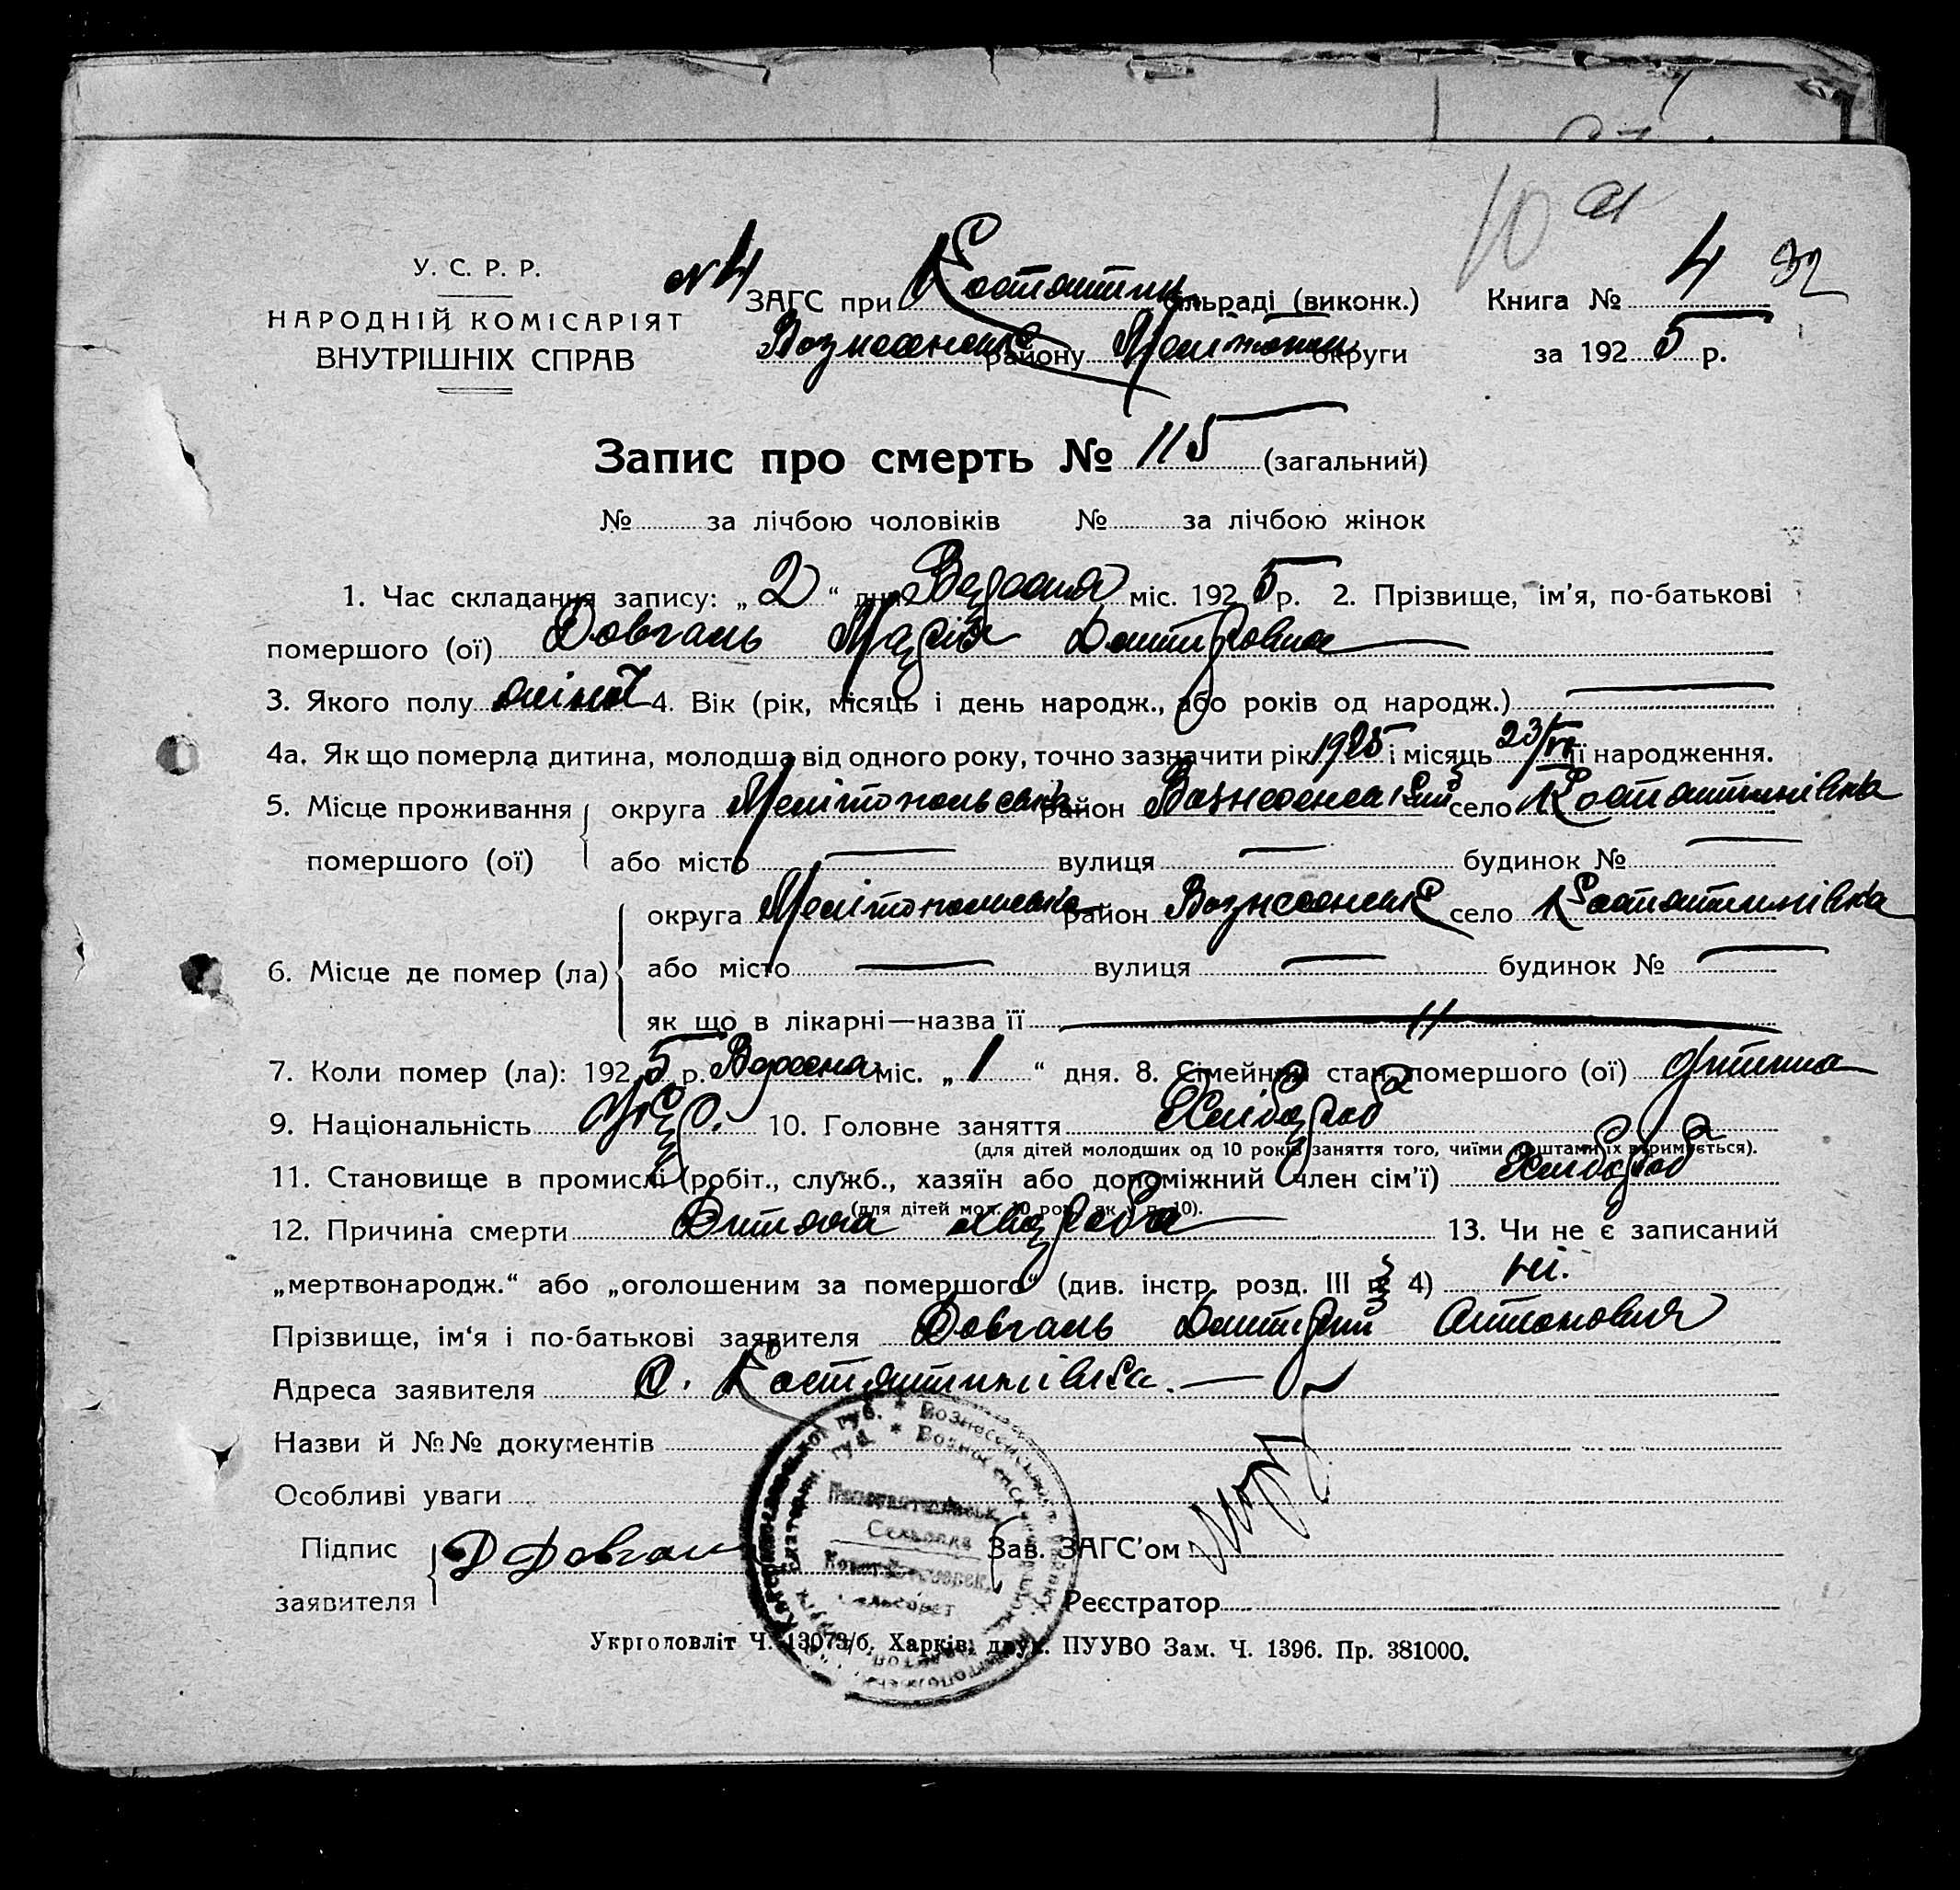 10
У. С. Р. Р.
НАРОДНІЙ КОМІСАРІЯТ
ВНУТРІШНІХ СПРАВ
N 4 ЗАГС при Костянтин сільраді (виконк.)
Вознесенськ району Мелітоп округи
Книга № 4 92
за 1925 р.
Запис про смерть № 115 (загальний)
№ за лічбою чоловіків № за лічбою жінок
1. Час складання запису: „ 2 “ дня Вересня міс. 1925 р. 2. Прізвище, ім'я, по-батькові
помершого (ої) Довгаль Марія Дмитровна
3. Якого полу жіноч 4. Вік (рік, місяць і день народж., або років од народж.)
4а. Як що померла дитина, молодша від одного року, точно зазначити рік 1925 і місяць 23/ її народження.
5. Місце проживання округа Мелітопольська район Вознесенський село Костянтинівка
помершого (ої) або місто вулиця будинок №
округа Мелітопольська район Вознесенськ село Костянтинівка
6. Місце де помер (ла) або місто вулиця будинок №
як що в лікарні—назва її
7. Коли помер (ла): 1925 р. Вересня міс. „ 1 “ дня. 8. Сімейний стан помершого (ої) дитина
9. Національність Укр. 10. Головне заняття Хлібороб
(для дітей молодших од 10 років заняття того, чиїми коштами їх втримується).
11. Становище в промислі (робіт., служб., хазяїн або допоміжний член сім'ї) Хлібороб
(для дітей мол. 10 рок. як у п. 10).
12. Причина смерти Дитяча хвороба 13. Чи не є записаний
„мертвонародж.“ або „оголошеним за помершого“ (див. інстр. розд. III § 4) ні.
Прізвище, ім'я і по-батькові заявителя Довгаль Дмитрий Антонович
Адреса заявителя С. Костянтинівка.
Назви й №№ документів
Особливі уваги
Підпис заявителя Д Довгал
Зав. ЗАГС'ом
Реєстратор
Укрголовліт Ч. 13073/б. Харків, друк. ПУУВО Зам. Ч. 1396. Пр. 381000.